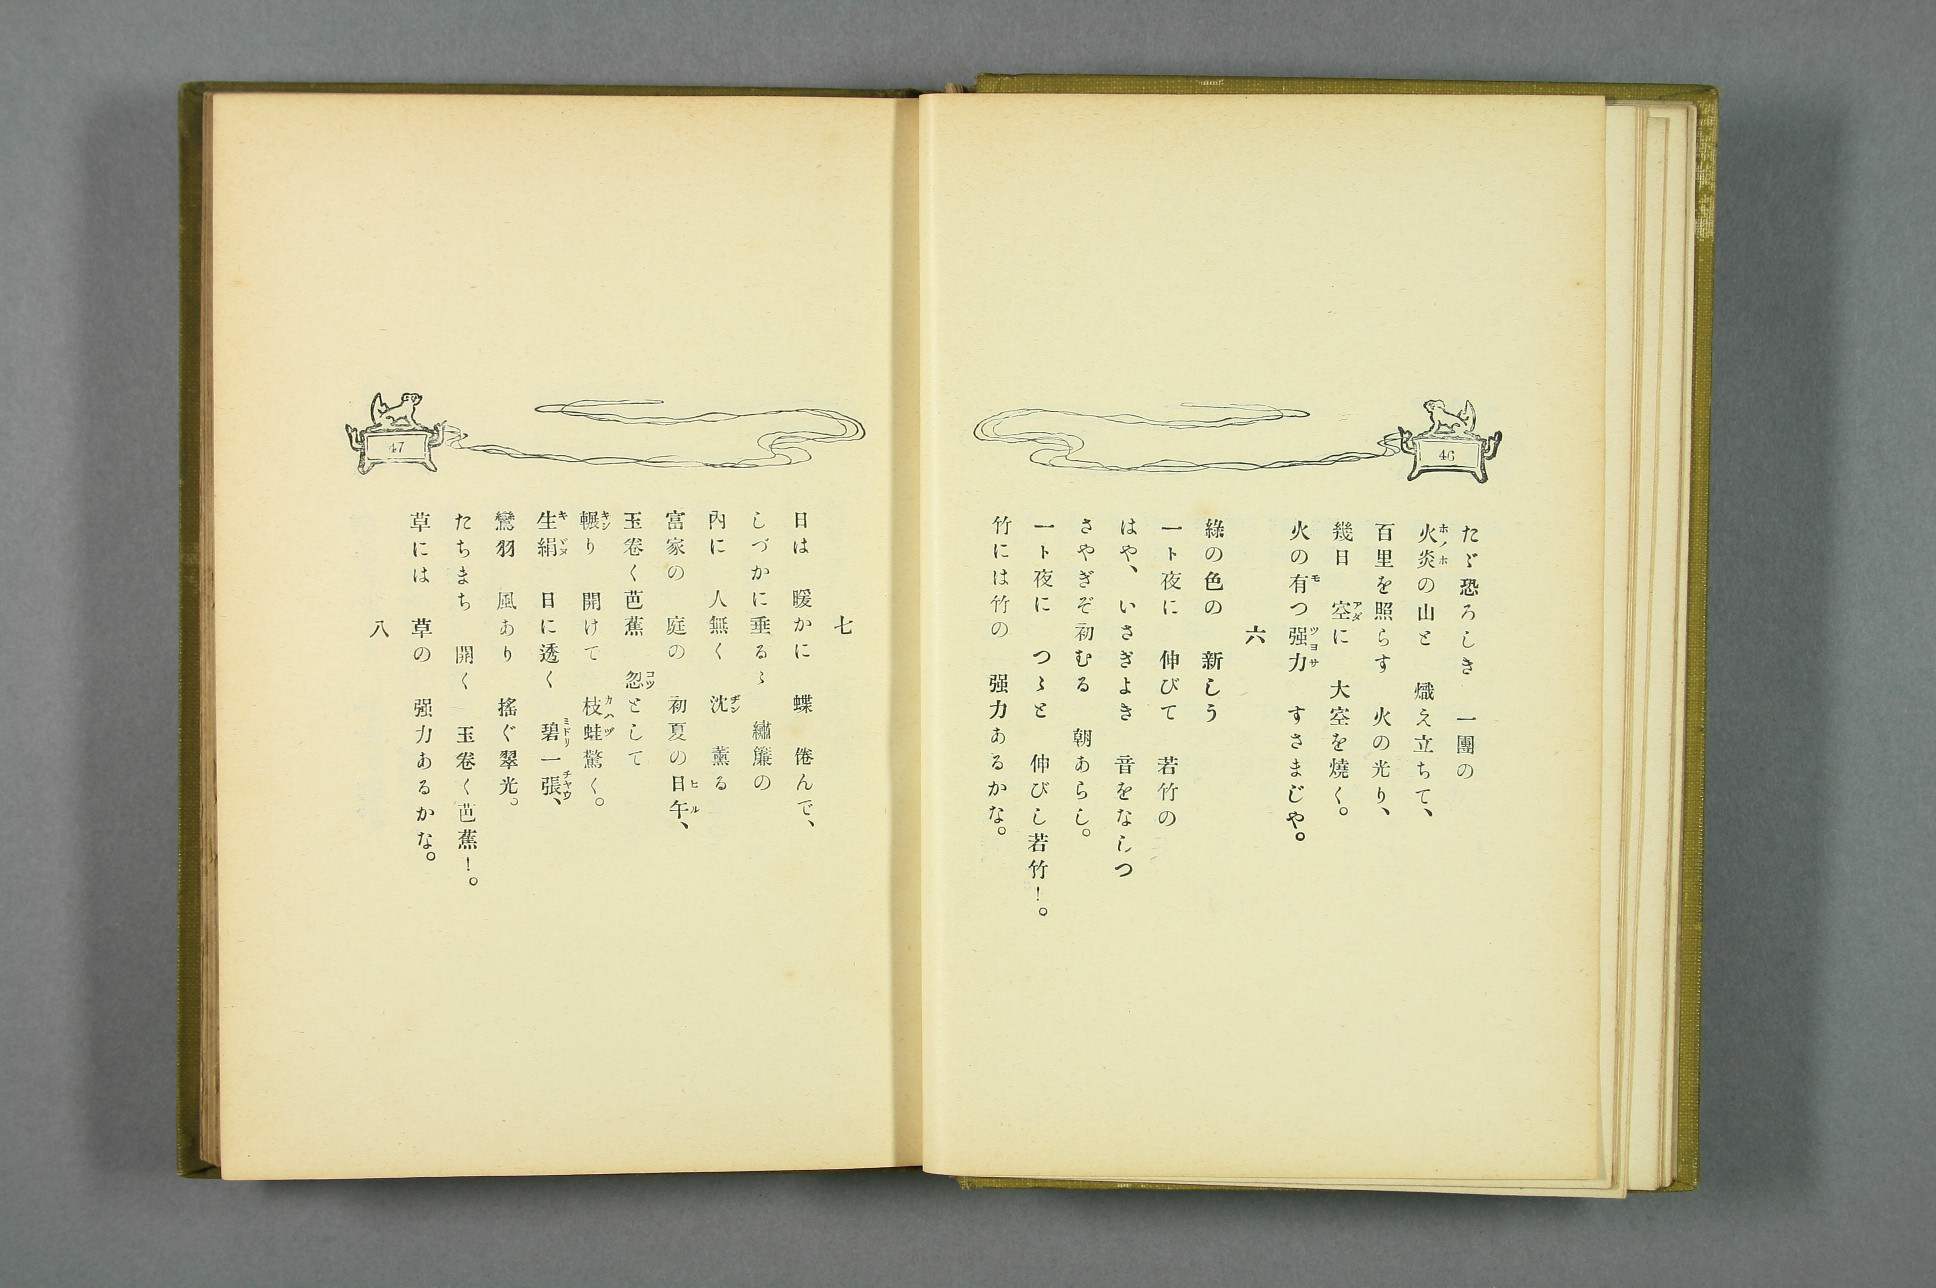 46
たゞ恐ろしき　一團の
火炎の山と　熾え立ちて、
百里を照らす　火の光り、
幾日　空に　大空を燒く。
火の有つ强力　すさまじや。
六
綠の色の　新しう
一ト夜に　伸びて　若竹の
はや、いさぎよき　音をなしつ
さやぎぞ初むる　朝あらし。
一ト夜に　つゝと　伸びし若竹！。
竹には竹の　强力あるかな。
47
七
日は　暖かに　蝶　倦んで、
しづかに垂るゝ　繡簾の
內に　人無く　沈　薰る
富家の　庭の　初夏の日午、
玉卷く芭蕉　忽として
輾り　開けて　枝蛙驚く。
生絹　日に透く　碧一張、
鸞羽　風あり　搖ぐ翠光。
たちまち　開く　玉卷く芭蕉！。
草には　草の　强力あるかな。
八